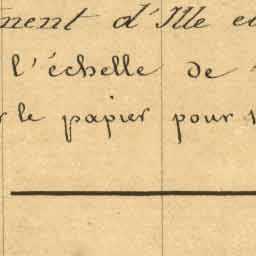 ment d'Ille e
l'échelle de
r le papier pour